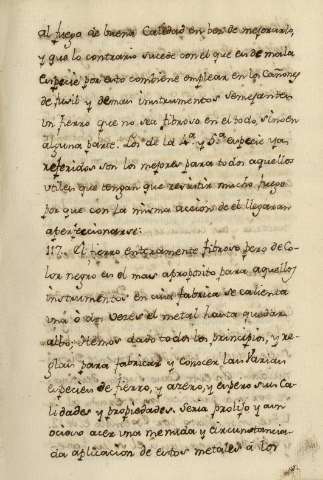 al fuego de buena Calidad en bes de mejorarlo,
y que lo contrario sucede con el que es de mala
especie por esto combiene emplear en los Cañones
de fusil y demas instrumentos semejantes
un fierro que no sea fibroso en el todo, sino en
alguna parte. Los de la 4.ª y 5.ª especie ya
referidos son los mejores para todos aquellos
utiles que tengan que resistir mucho fuego
por que con la misma accion de el llegaran
a perfeccionarse:
117. El fierro enteramente fibroso pero de Co-
lor negro es el mas aproposito para aquellos
instrumentos en cuia fabrica se calienta
una ô dos vezes el metal hasta quedar
albo; Hemos dado todos los principios, y re-
glas para fabricar y conocer las varias
especies de fierro, y azero, y espero sus Ca-
lidades y propiedades. Seria prolijo y aun
ocioso acer una menuda y circunstancia-
da aplicacion de estos metales â los